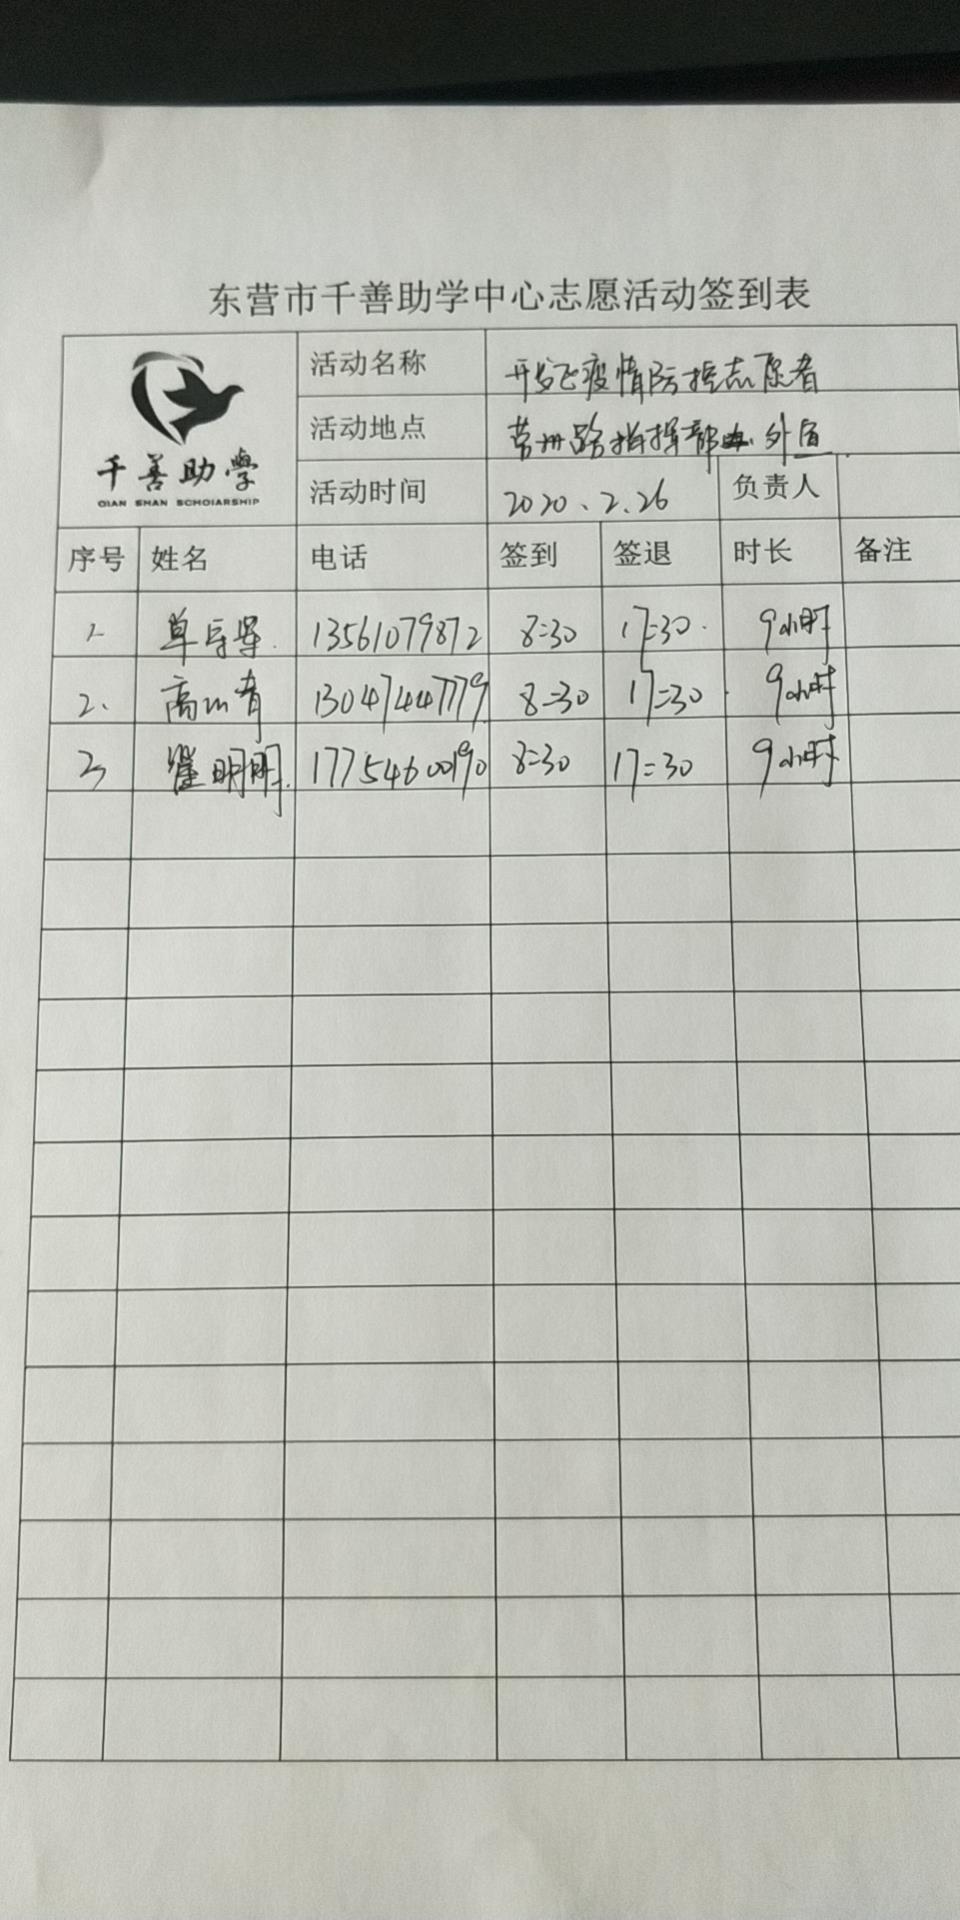 东营市千善助学中心志愿活动签到表
千善助學
QIAN SHAN SCHOLARSHIP
活动名称 开发区疫情防控志愿者
活动地点 指挥部 外围
活动时间 2020.2.26 负责人
序号 姓名 电话 签到 签退 时长 备注
1. 13561079872 8:30 17:30 9小时
2. 高 青 13047444779 8:30 17:30 9小时
3 明明 17754600190 8:30 17:30 9小时